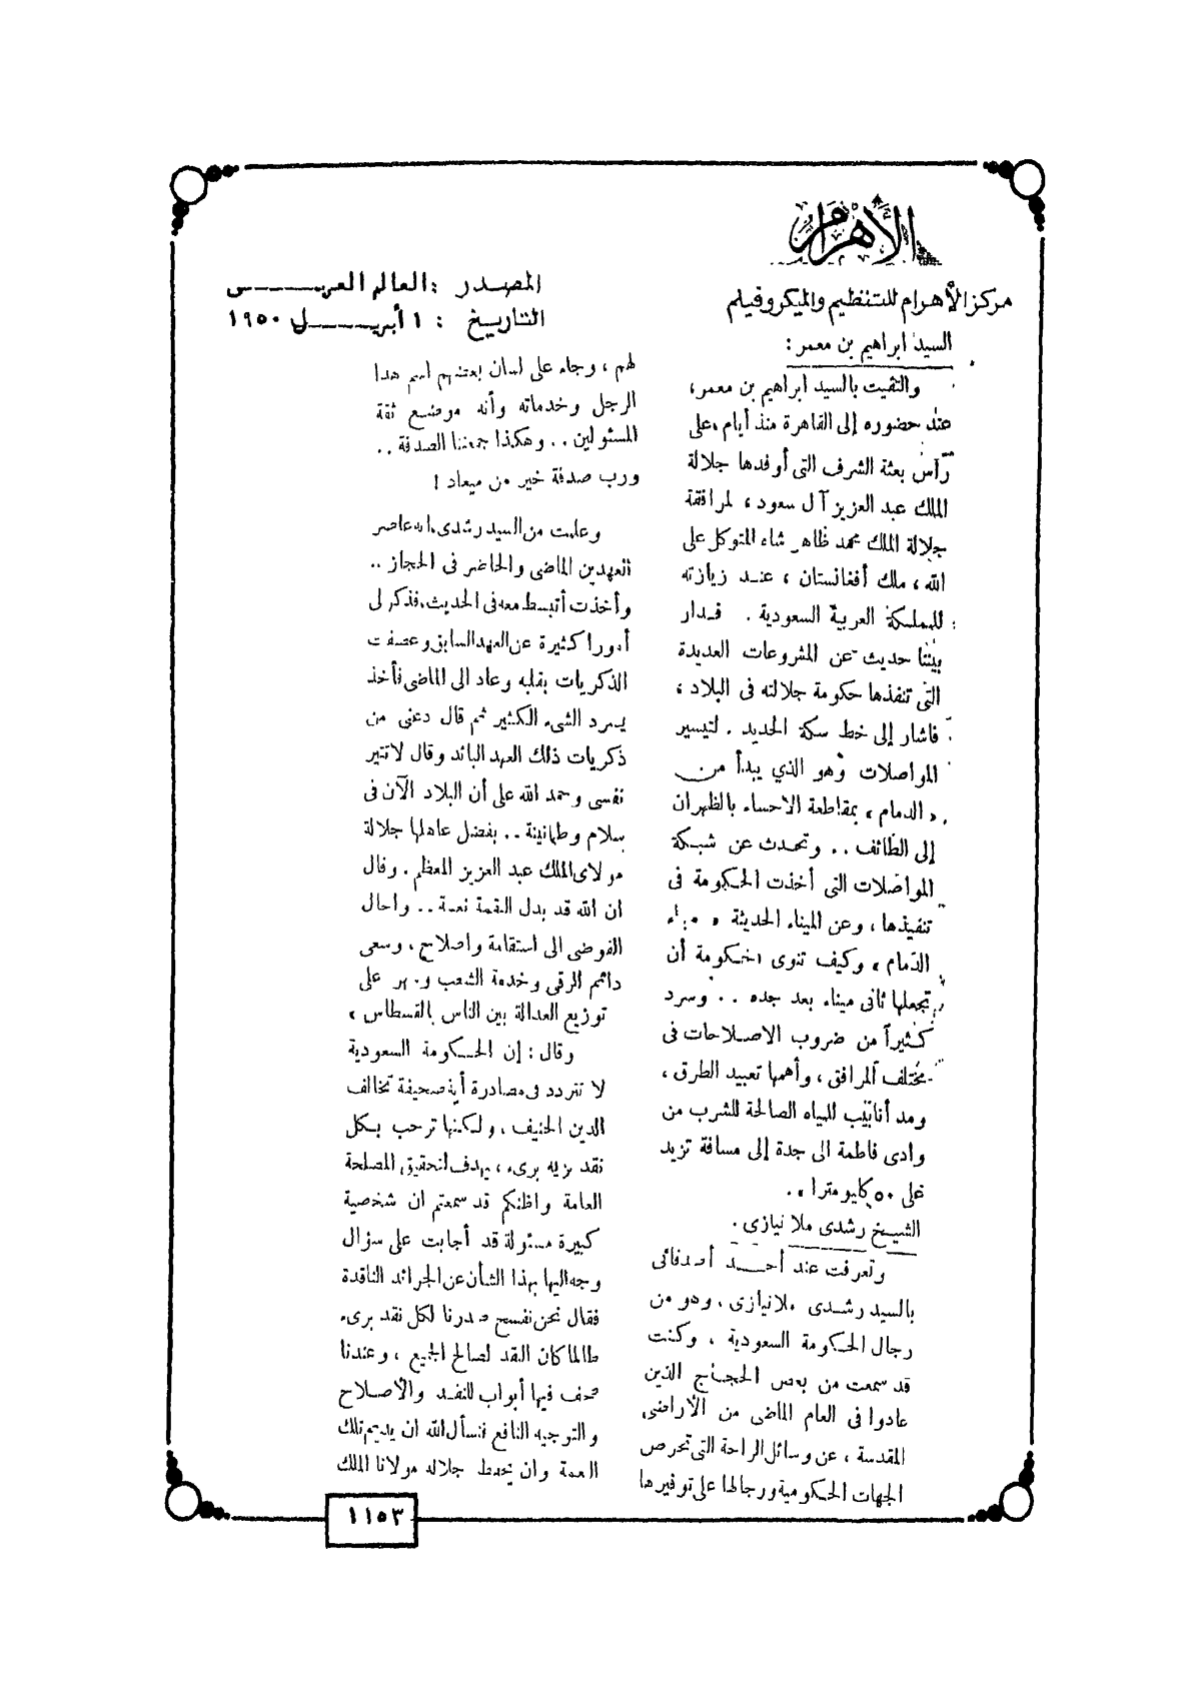 الأهرام
مركز الأهرام للتنظيم والميكروفيلم
المصدر : العالم العربى
التاريخ : ١ أبريل ١٩٥٠
السيد ابراهيم بن معمر :
والتقيت بالسيد ابراهيم بن معمر ،
عند حضوره إلى القاهرة منذ أيام ، على
رأس بعثة الشرف التى أوفدها جلالة
الملك عبد العزيز آل سعود ، لمرافقة
جلالة الملك محمد ظاهر شاه المتوكل على
الله ، ملك أفغانستان ، عند زيارته
للمملكة العربية السعودية . فدار
بيننا حديث عن المشروعات العديدة
التى تنفذها حكومة جلالته فى البلاد ،
فاشار إلى خط سكة الحديد . لتيسير
المواصلات وهو الذي يبدأ من
« الدمام » بمقاطعة الاحساء بالظهران
إلى الطائف . . وتحدث عن شبكة
المواصلات التى أخذت الحكومة فى
تنفيذها ، وعن الميناء الحديثة « ميناء
الدمام » وكيف تنوى الحكومة أن
تجعلها ثانى ميناء بعد جده . . وسرد
كثيراً من ضروب الاصلاحات فى
مختلف المرافق ، وأهمها تعبيد الطرق ،
ومد أنابيب للمياه الصالحة للشرب من
وادى فاطمة الى جدة إلى مسافة تزيد
على ٥٠ كيلومترا » .
الشيخ رشدى ملا نيازى .
وتعرفت عند أحد أصدقائى
بالسيد رشدى ملانيازى ، وهو من
رجال الحكومة السعودية ، وكنت
قد سمعت من بعض الحجاج الذين
عادوا فى العام الماضى من الأراضى
المقدسة ، عن وسائل الراحة التى تحرص
الجهات الحكومية ورجالها على توفيرها
لهم ، وجاء على لسان بعضهم اسم هذا
الرجل وخدماته وأنه موضع ثقة
المسئولين . . وهكذا جمعتنا الصدفة . .
ورب صدفة خير من ميعاد !
وعلمت من السيد رشدى انه عاصر
العهدين الماضى والحاضر فى الحجاز . .
وأخذت أتبسط معه فى الحديث ، فذكر لى
أمورا كثيرة عن العهد السابق وعصفت
الذكريات بقلبه وعاد الى الماضى فأخذ
يسرد الشىء الكثير ثم قال دعنى من
ذكريات ذلك العهد البائد وقال لا تثير
نفسى وحمد الله على أن البلاد الآن فى
سلام وطمانينة . . بفضل عاهلها جلالة
مولاى الملك عبد العزيز المعظم . وقال
ان الله قد بدل النقمة نعمة . . واحال
الفوضى الى استقامة واصلاح ، وسعى
دائم الرقى وخدمة الشعب وسهر على
توزيع العدالة بين الناس بالقسطاس ،
وقال : إن الحكومة السعودية
لا تتردد فى مصادرة أية صحيفة تخالف
الدين الحنيف ، ولكنها ترحب بكل
نقد نزيه برىء ، يهدف لتحقيق المصلحة
العامة واظنكم قد سمعتم ان شخصية
كبيرة مسئولة قد أجابت على سؤال
وجه اليها بهذا الشأن عن الجرائد الناقدة
فقال نحن نفسح صدرنا لكل نقد برىء
طالما كان النقد لصالح الجميع ، وعندنا
صحف فيها أبواب للنقد والاصلاح
والتوجيه النافع فنسأل الله ان يديم تلك
النعمة وان يحفظ جلالة مولانا الملك
١١٥٣